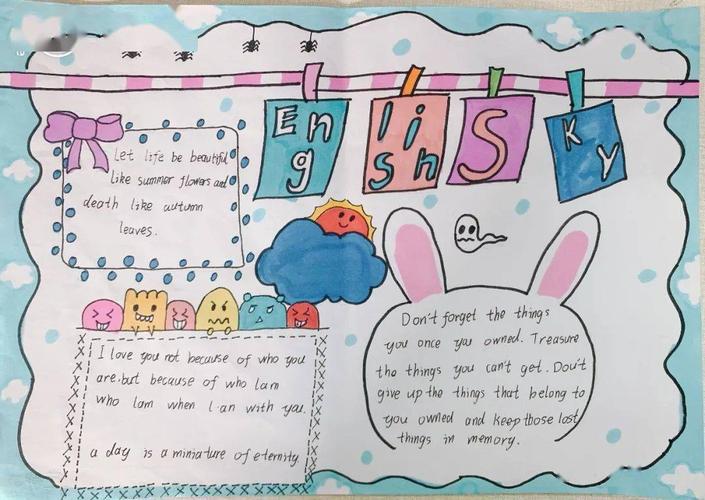 En
g
li
sh
S
K
y
Let life be beautiful
like summer flowers and
death like autumn
leaves.
I love you not because of who you
are.but because of who Iam
who Iam when I an with you.
a day is a miniature of eternity
Don't forget the things
you once you owned. Treasure
the things you can't get. Don't
give up the things that belong to
you owned and keep those lost
things in memory.